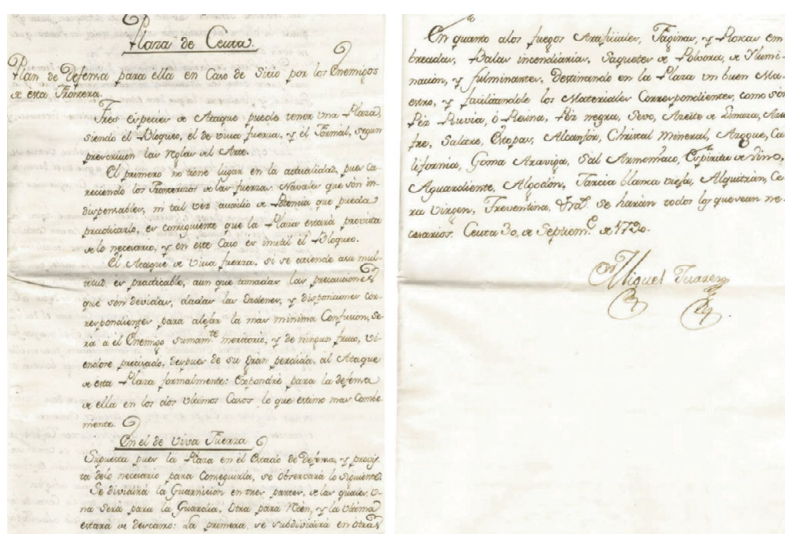 Plaza de Ceuta.
Plan de Defensa para ella en Caso de Sitio por los Enemigos
de esta Frontera.
Tres especies de Ataque puede tener una Plaza,
siendo el Bloqueo, el de viva fuerza, y el Formal, segun
previenen las Reglas del Arte.
El primero no tiene lugar en la actualidad, pues ca-
reciendo los Fronterizos de las fuerzas Navales que son in-
dispensables, ni tal vez auxilio de Potencia que pueda
practicarlo, es consiguiente que la Plaza estará provista
de lo necesario, y en este Caso es inutil el Bloqueo.
El Ataque de Viva fuerza, si se atiende a su mul-
titud es practicable, aun que tomadas las precauciones
que son devidas, dadas las Ordenes, y disposiciones cor-
respondientes para alejar la mas minima Confusion, se-
rá a el Enemigo sumamte. mortorio, y de ningun fruto, vi-
endose precisado, despues de su gran perdida, al Ataque
de esta Plaza formalmente: Expondré para la defensa
de ella en los dos ultimos Casos lo que estimo mas Combe-
niente.
En el de Viva Fuerza
Supuesta pues la Plaza en el Estado de Defensa, y provis-
ta delo necesario para Conseguirla, se observará lo Siguiente.
Se dividirá la Guarnicion en tres partes, de las quales, u-
na será para la Guardia, Otra para Retén, y la ultima
estará de descanso: La primera, se subdividirá en otras
En quanto alos fuegos Artificiales, Faginas, y Roscas em-
breadas, Balas incendiarias, Saquetes de Polvora, de Ylumi-
nación, y fulminantes. Destinando en la Plaza un buen Ma-
estro, y facilitandole los Materiales Correspondientes, como son
Péz Ruvia, ó Resina, Péz negra, Sevo, Azeite de Linaza, Azu-
fre, Salitre, Estopas, Alcanfor, Christal Mineral, Azogue, Ca-
Goma Araviga, Sal Armoniaco, Espiritu de Vino,
Aguardiente, Algodon, Tarcia blanca vieja, Alquitrán, Ce-
ra Virgen, Trementina, &a. se harán todos los que sean ne-
cesarios. Ceuta 30, de Septiembre de 1790.
Dn. Miguel Juarez